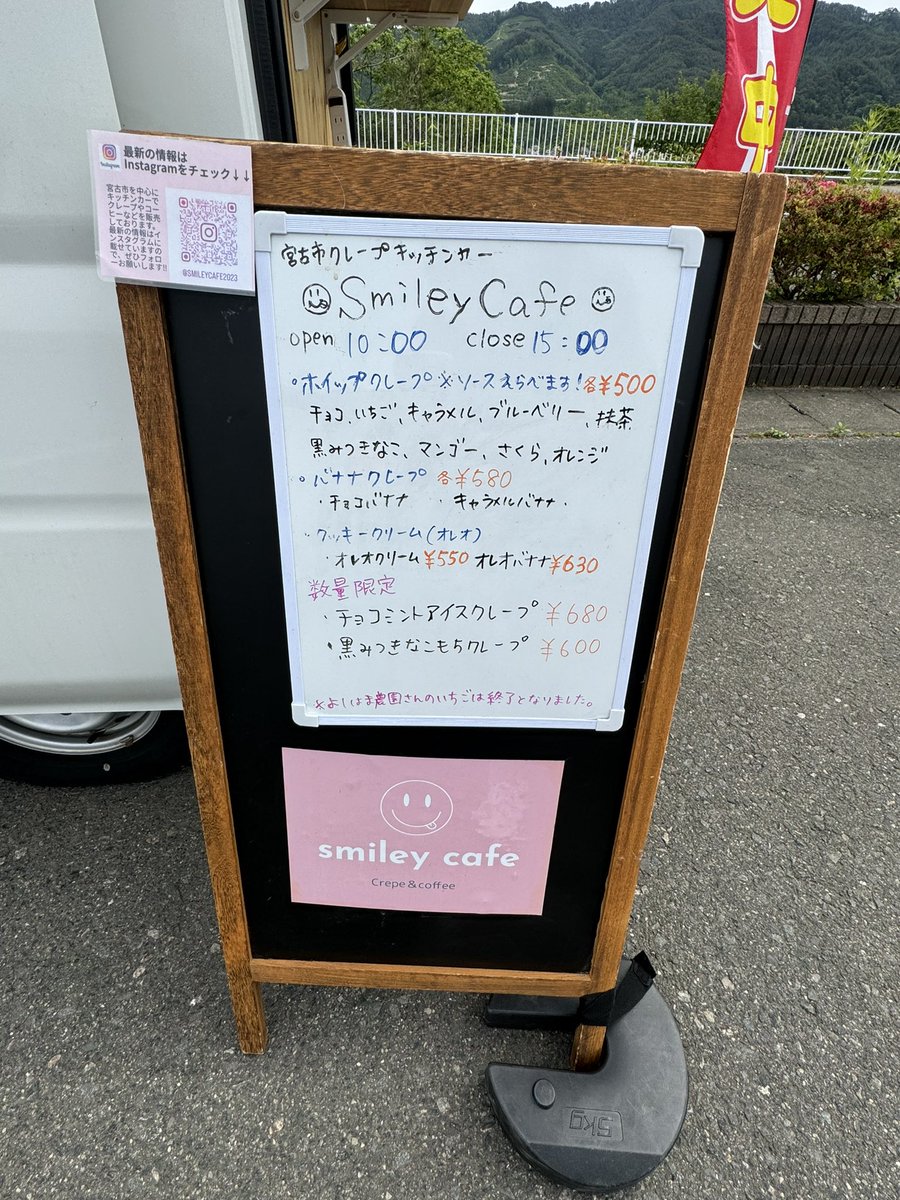 最新の情報は
Instagramをチェック↓↓
Instagram
宮古市を中心に
キッチンカーで
クレープやコー
ヒーなどを販売
しております。
最新の情報はイ
ンスタグラムに
載せていますの
で、ぜひフォロ
ーお願いします!!
@SMILEYCAFE2023
宮古市クレープキッチンカー
Smiley Cafe
open 10:00 close 15:00
・ホイップクレープ ※ソースえらべます!各¥500
チョコ、いちご、キャラメル、ブルーベリー、抹茶
黒みつきなこ、マンゴー、さくら、オレンジ
・バナナクレープ 各¥580
・チョコバナナ ・キャラメルバナナ・
・クッキークリーム(オレオ)
・オレオクリーム¥550 オレオバナナ¥630
数量限定
・チョコミントアイスクレープ ¥680
・黒みつきなこもちクレープ ¥600
※よしはま農園さんのいちごは終了となりました。
smiley cafe
Crepe&coffee
5kg
中